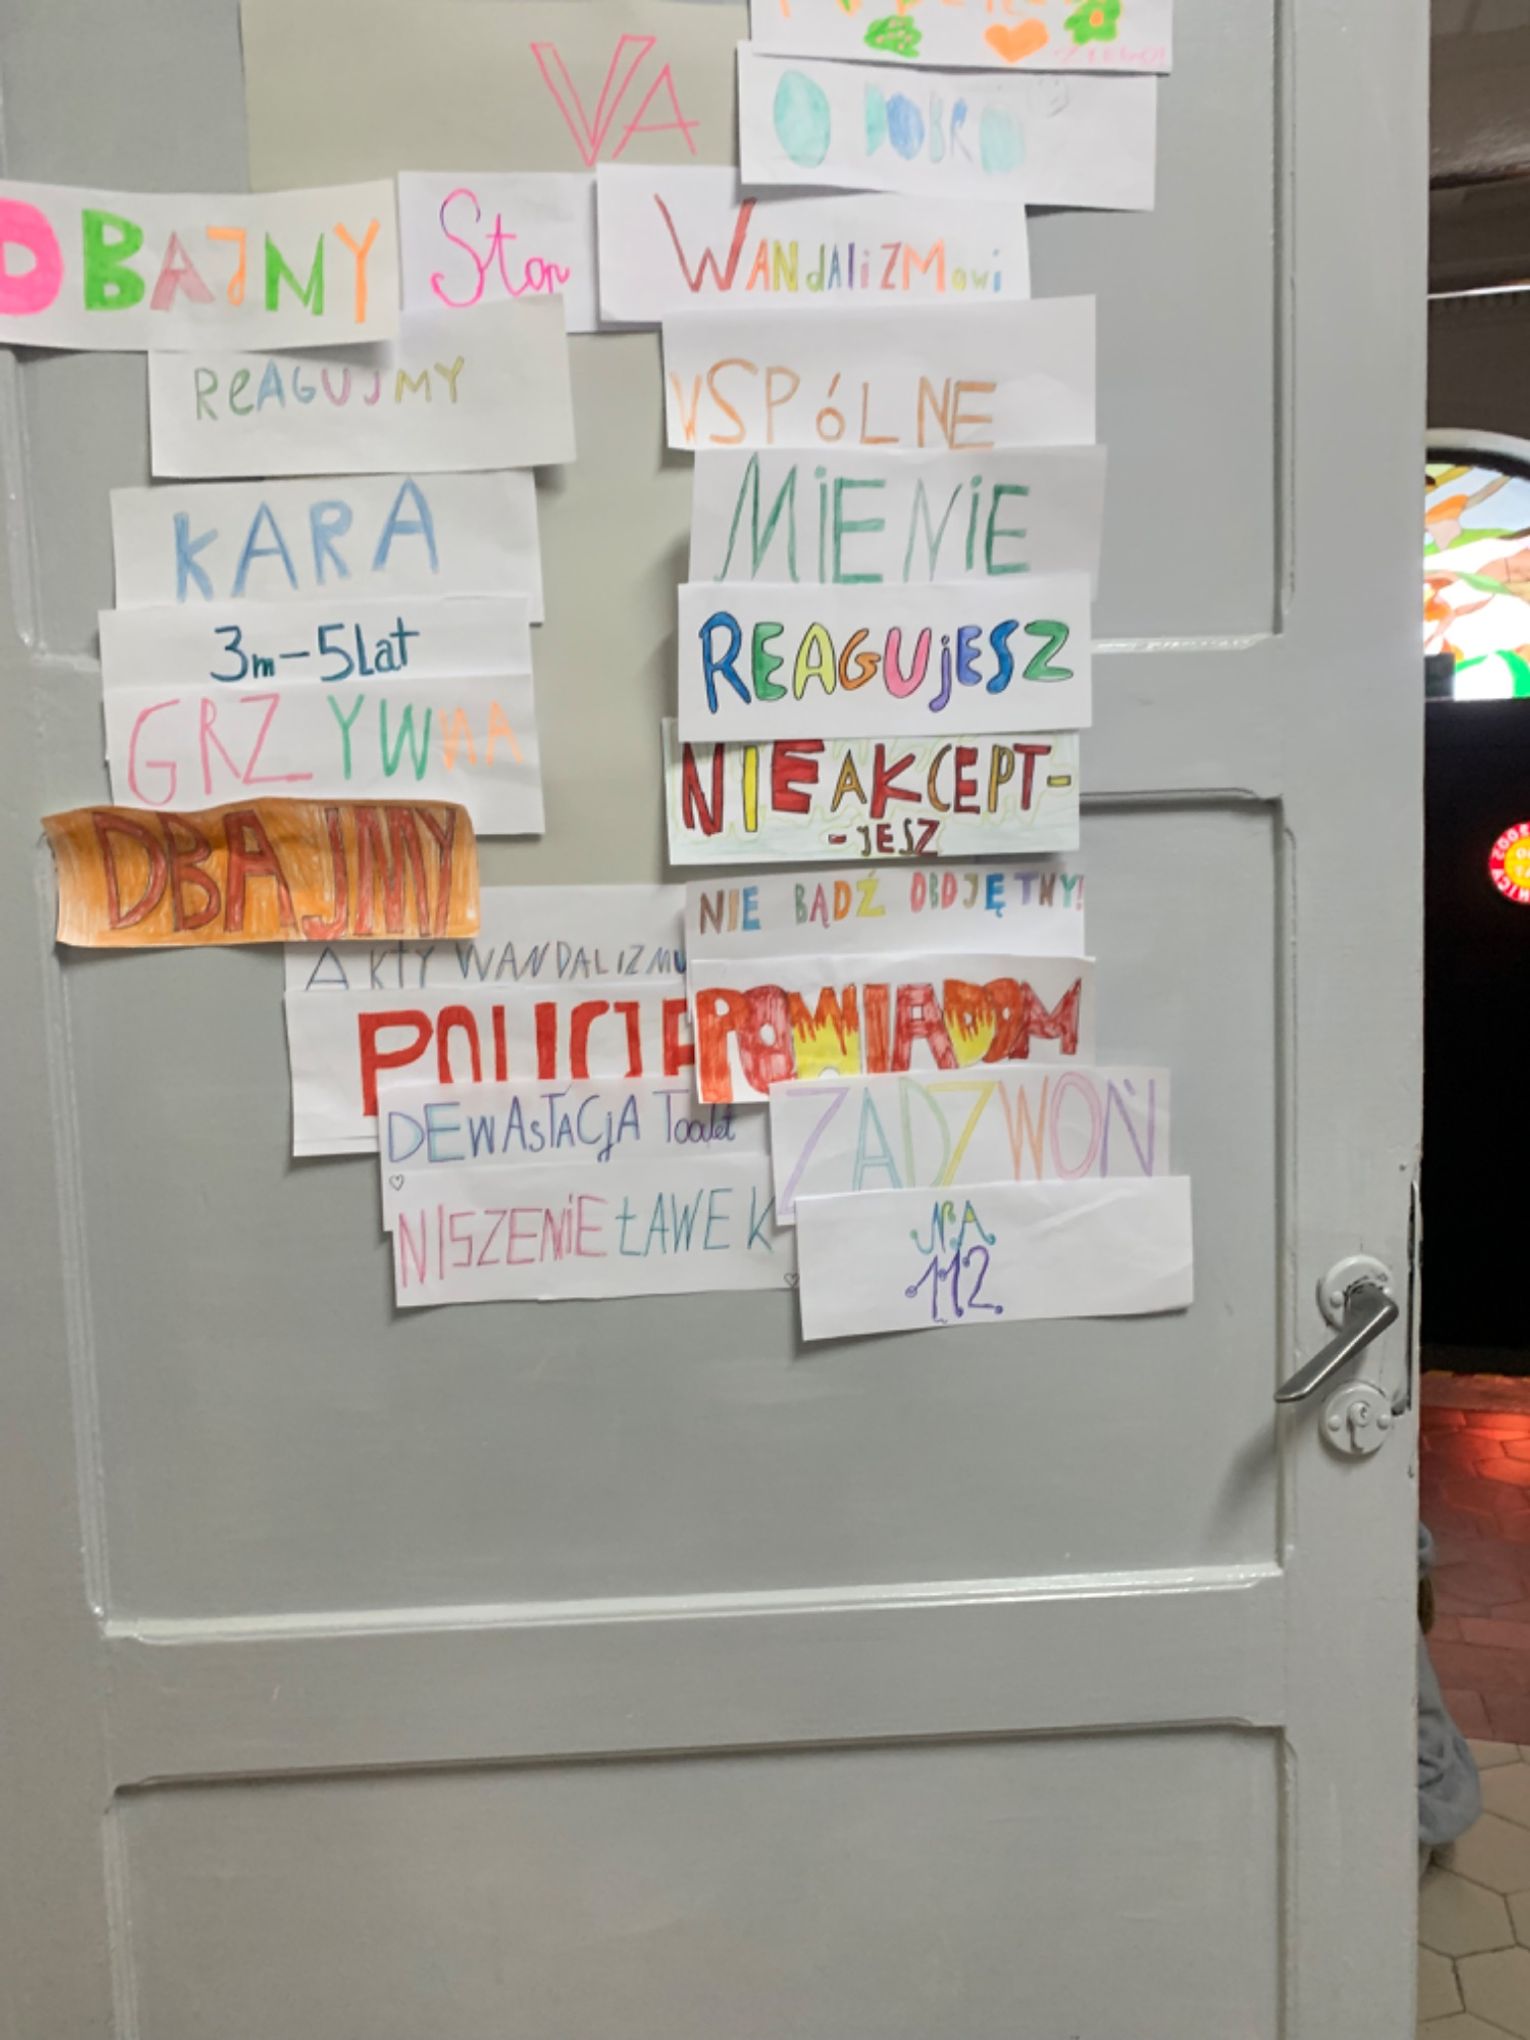 VA
O DOBRO
DBAJNY
Stop
WANdALiZMowi
REAGUJMY
WSPÓLNE
KARA
MiENiE
3m-5Lat
REAGUjESZ
GRZYWNA
NIE AKCEPT-
-JESZ
DBAJMY
NIE BĄDŹ OBOJĘTNY!
AKTY WANDALIZMU
POWIADOM
POLICJA
DEWAsTACjA Toalet
ZADZWOŃ
NISZENiE ŁAWEK
NA
112